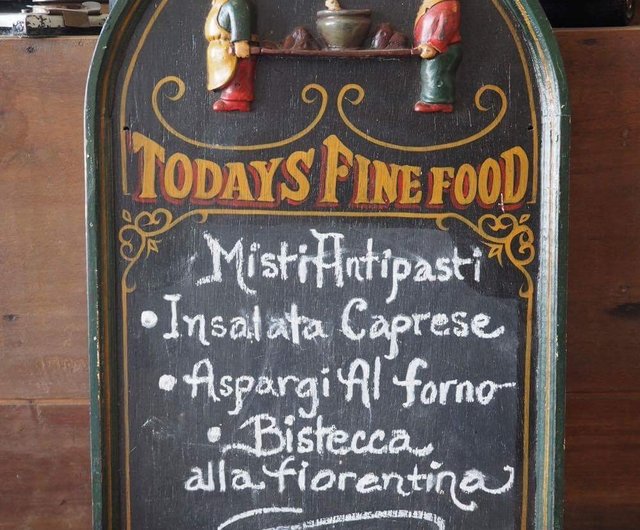 TODAYS FINE FOOD
Misti Antipasti
• Insalata Caprese
• Aspargi Al forno
• Bistecca
alla fiorentina